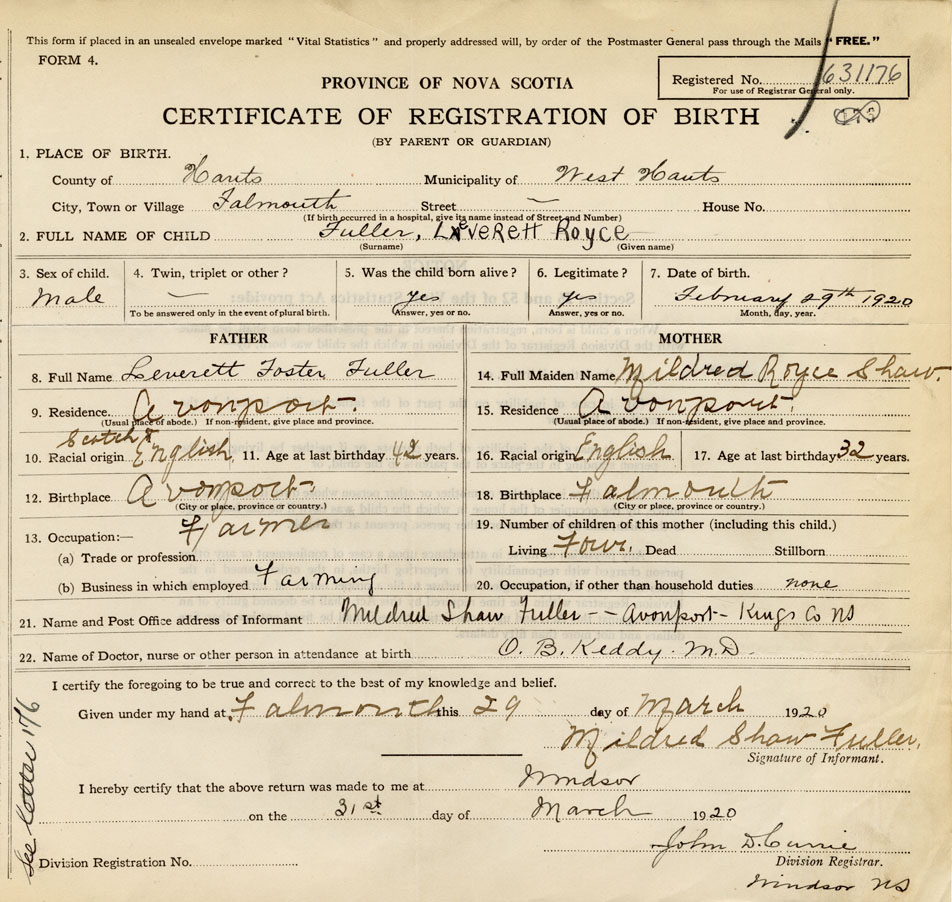 This form if placed in an unsealed envelope marked "Vital Statistics" and properly addressed will, by order of the Postmaster General pass through the Mails "FREE."
FORM 4.
PROVINCE OF NOVA SCOTIA
Registered No. 631176
For use of Registrar General only.
CERTIFICATE OF REGISTRATION OF BIRTH
(BY PARENT OR GUARDIAN)
1. PLACE OF BIRTH.
County of Hants Municipality of West Hants
City, Town or Village Falmouth Street — House No.
(If birth occurred in a hospital, give its name instead of Street and Number)
2. FULL NAME OF CHILD Fuller, Leverett Royce
(Surname) (Given name)
3. Sex of child. 4. Twin, triplet or other? 5. Was the child born alive? 6. Legitimate? 7. Date of birth.
Male — yes yes February 29th 1920
To be answered only in the event of plural birth. Answer, yes or no. Answer, yes or no. Month, day, year.
FATHER MOTHER
8. Full Name Leverett Foster Fuller 14. Full Maiden Name Mildred Royce Shaw.
9. Residence. Avonport. 15. Residence Avonport.
(Usual place of abode.) If non-resident, give place and province. (Usual place of abode.) If non-resident, give place and province.
Scotch &
10. Racial origin English. 11. Age at last birthday 42 years. 16. Racial origin English 17. Age at last birthday 32 years.
12. Birthplace Avonport 18. Birthplace Falmouth
(City or place, province or country.) (City or place, province or country.)
13. Occupation:— Farmer 19. Number of children of this mother (including this child.)
(a) Trade or profession Living Four. Dead Stillborn
(b) Business in which employed Farming 20. Occupation, if other than household duties none
21. Name and Post Office address of Informant Mildred Shaw Fuller -- Avonport - Kings Co NS
22. Name of Doctor, nurse or other person in attendance at birth O. B. Keddy. M.D.
I certify the foregoing to be true and correct to the best of my knowledge and belief.
Given under my hand at Falmouth this 29 day of March 1920
Mildred Shaw Fuller.
Signature of Informant.
I hereby certify that the above return was made to me at Windsor
on the 31st day of March 1920
John D. Currie
Division Registration No. Division Registrar.
Windsor NS
See letter